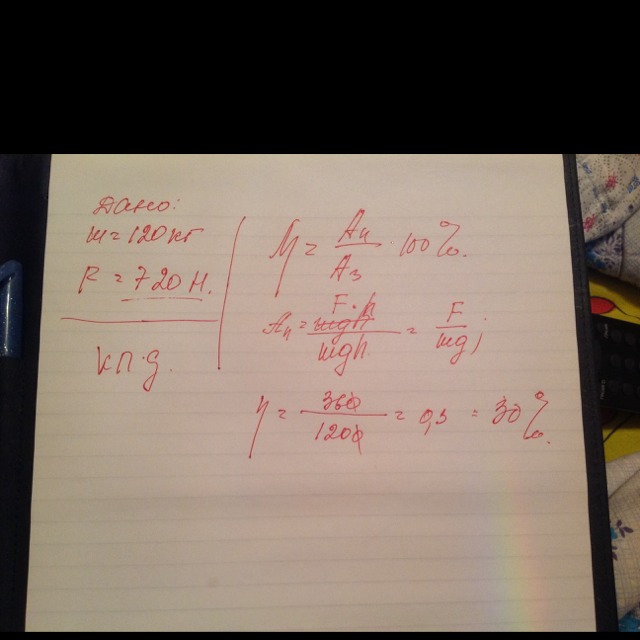 Дано:
m = 120 кг
F = 720 Н.
кп.д.
η = Aп / Aз · 100%.
Aп = F·h / mgh = F / mg;
η = 360 / 1200 = 0,3 = 30%.